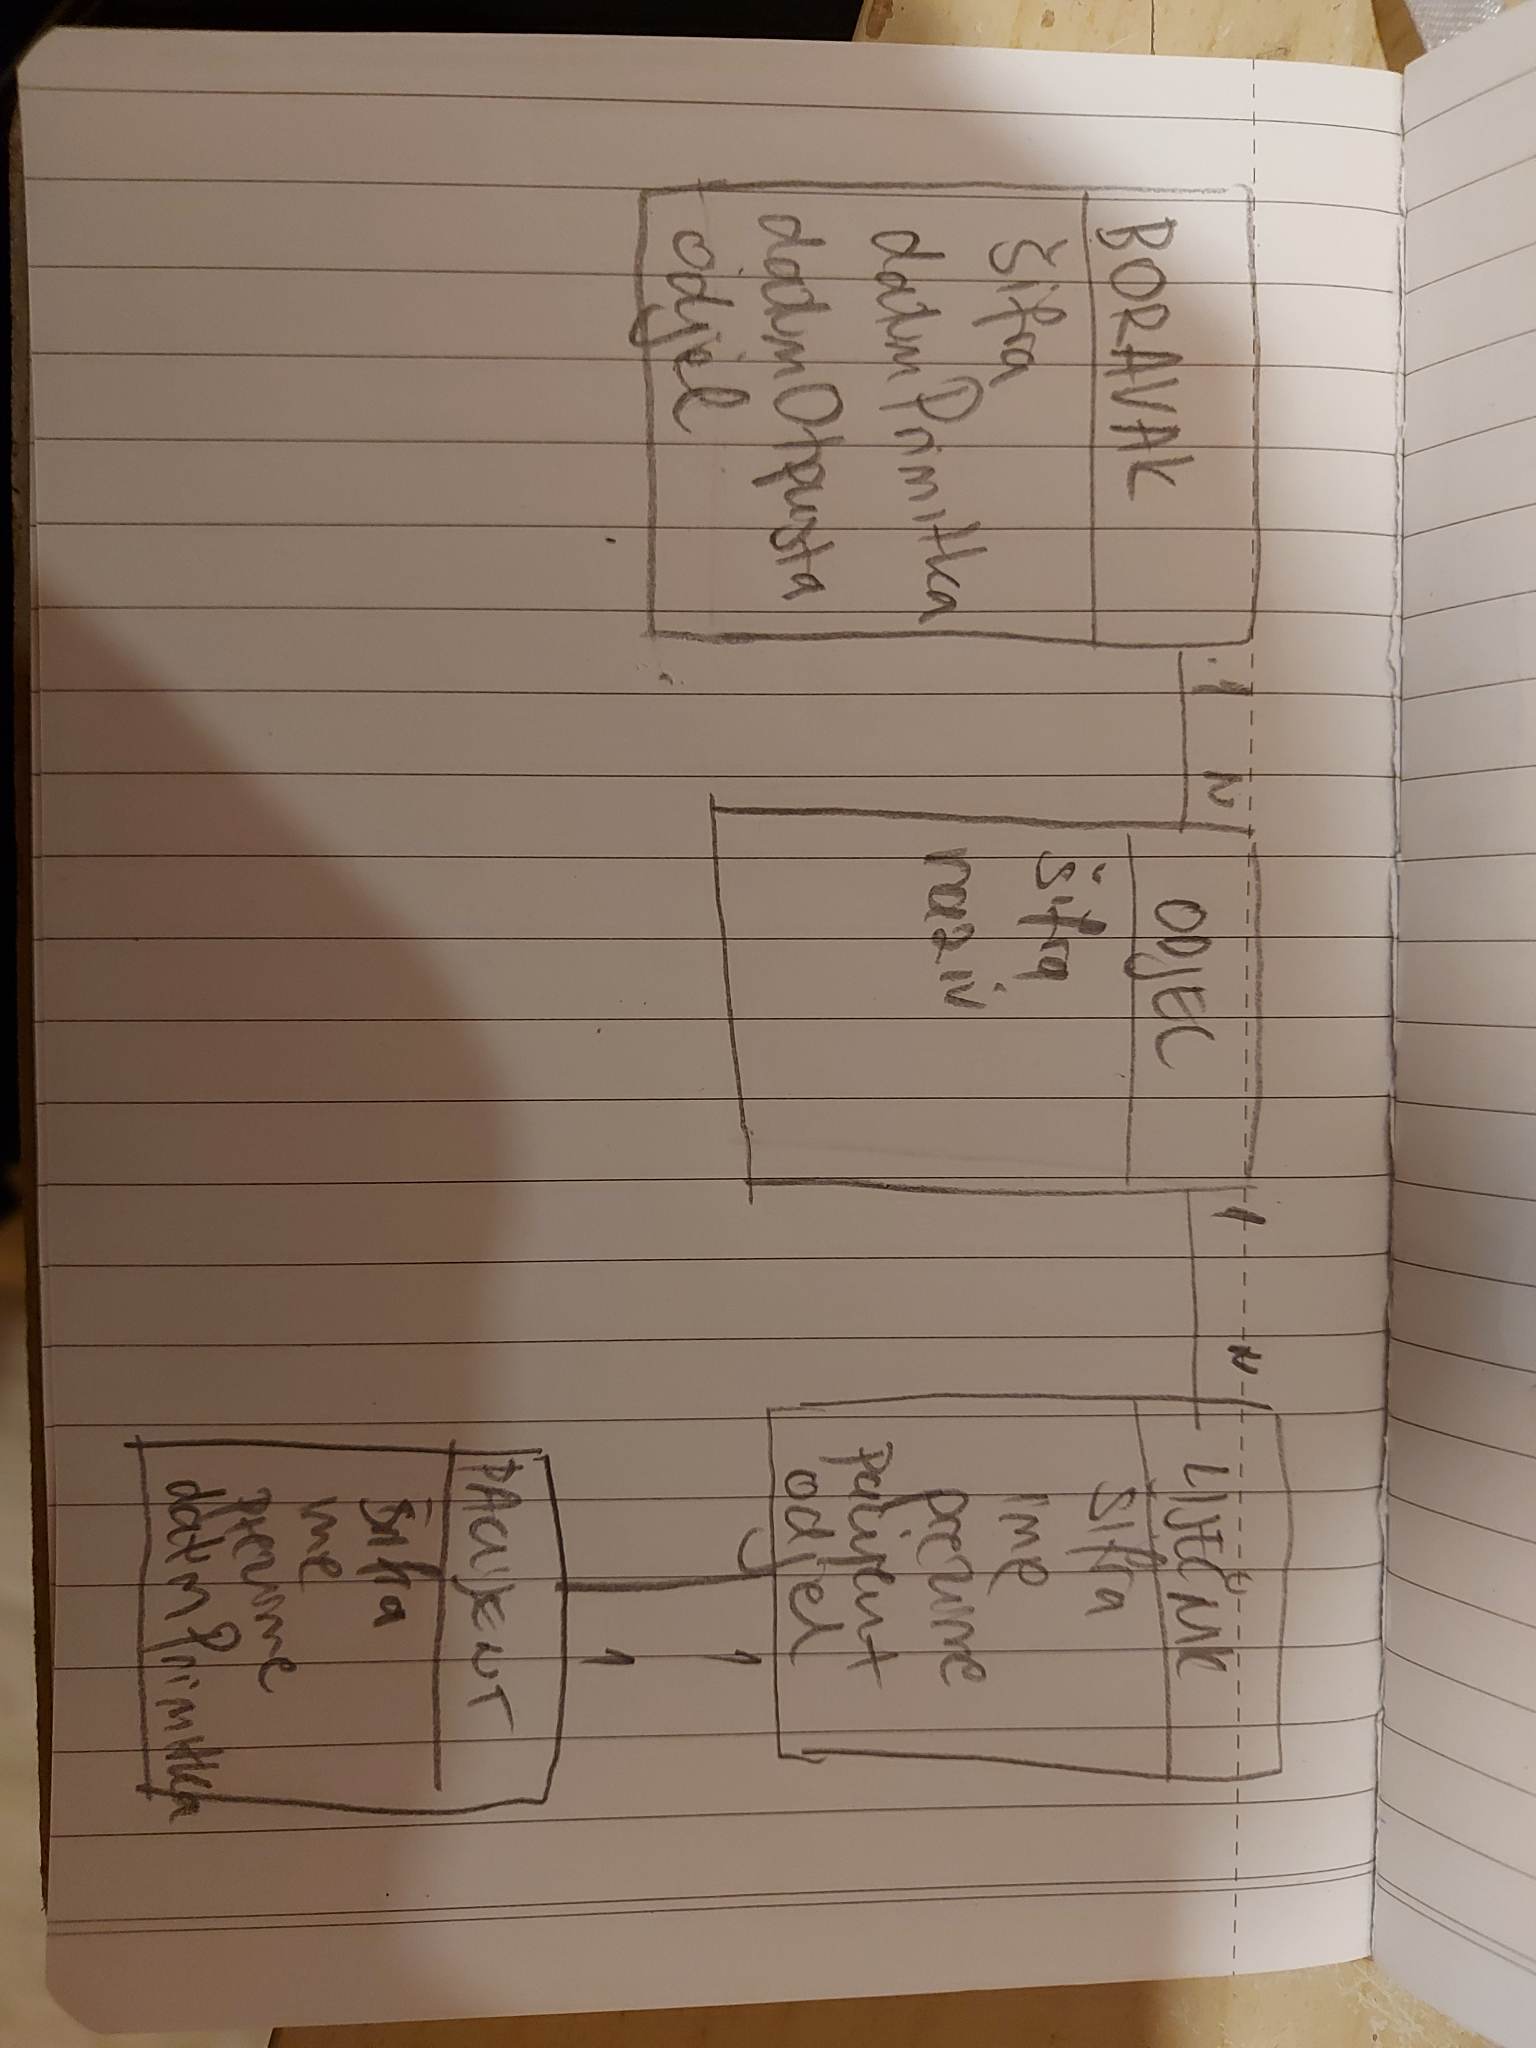 BORAVAK
šifra
datumPrimitka
datumOtpusta
odjel
1 N
ODJEL
šifra
naziv
1 N
LIJEČNIK
šifra
ime
prezime
pacijent
odjel
1
1
PACIJENT
šifra
ime
prezime
datumPrimitka